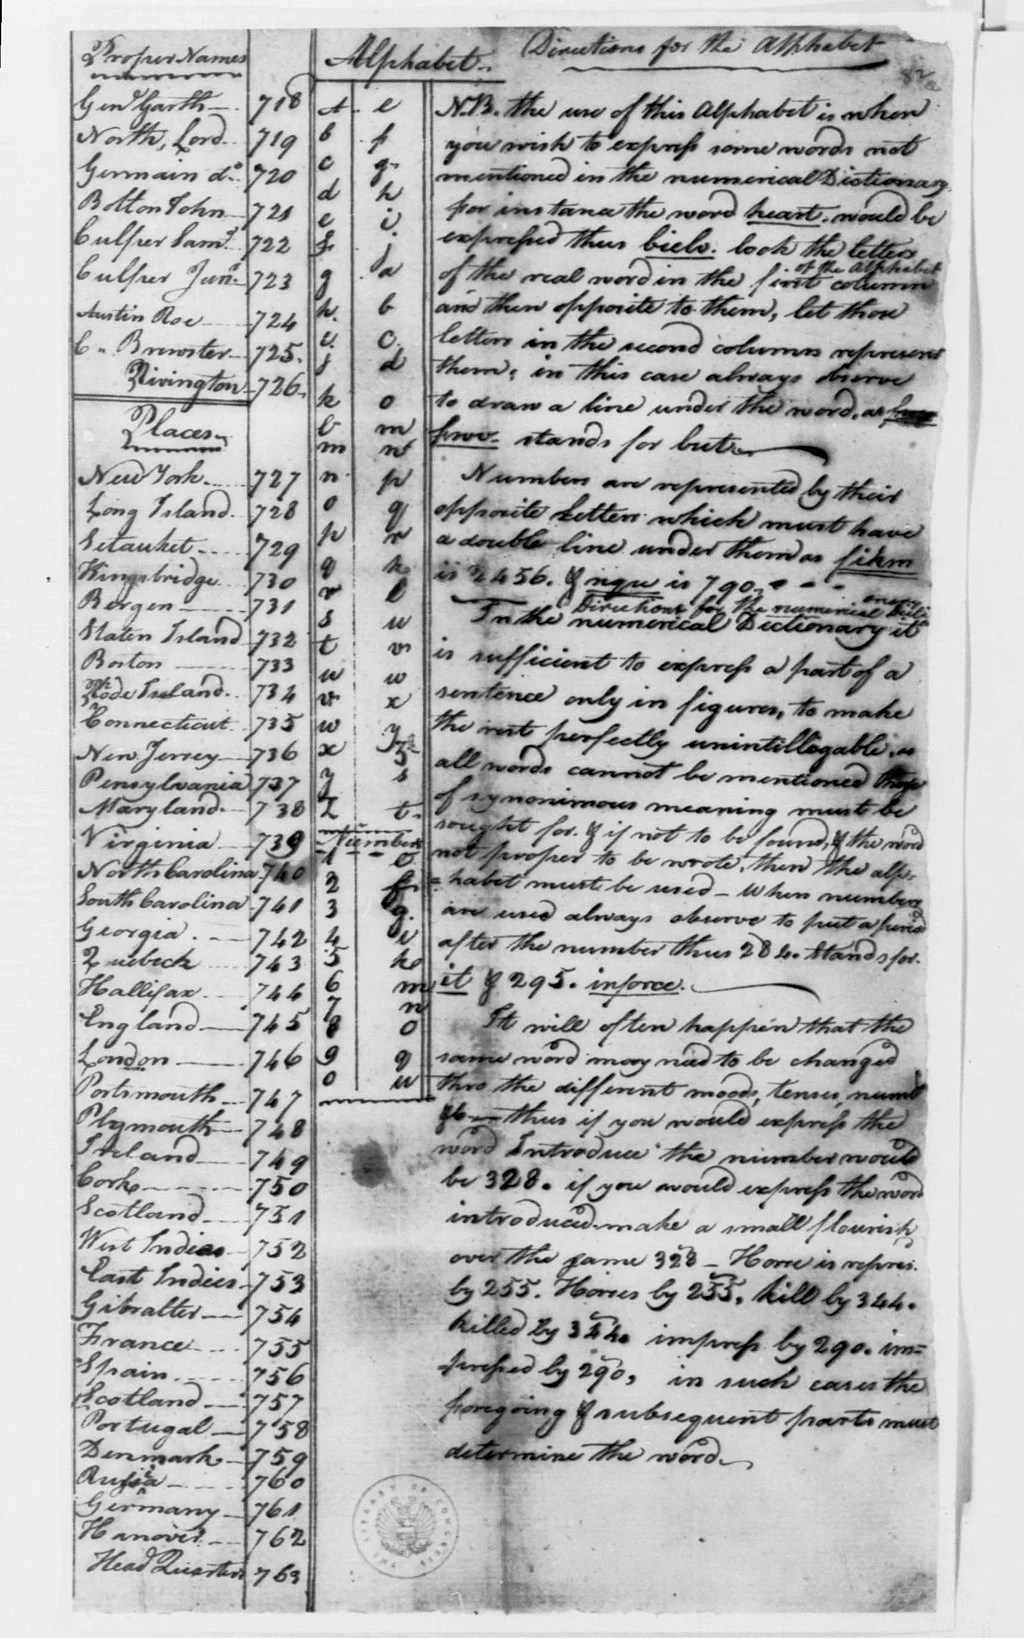 Proper Names
Genl Garth 718
North, Lord 719
Germain do 720
Bolton John 721
Culper Saml. 722
Culper Junr. 723
Austin Roe 724
C. Brewster 725.
Rivington 726.
Places
New York 727
Long Island 728
Setauket 729
Kingsbridge 730
Bergen 731
Staten Island 732
Boston 733
Rhode Island. 734
Connecticut 735
New Jersey 736
Pensylvania 737
Maryland 738
Virginia 739
North Carolina 740
South Carolina 741
Georgia 742
Quebeck 743
Hallifax 744
England 745
London 746
Portsmouth 747
Plymouth 748
Ireland 749
Cork 750
Scotland 751
West Indies 752
East Indies 753
Gibralter 754
France 755
Spain 756
Scotland 757
Portugal 758
Denmark 759
Russia 760
Germany 761
Hanover 762
Head Quarters 763
Alphabet.
a e
b f
c g
d h
e i
f j
g a
h b
i c
j d
k o
l m
m n
n p
o q
p r
q k
r l
s u
t v
u w
v x
w y
x z
y s
z t
Numbers
1 e
2 f
3 g
4 i
5 k
6 m
7 n
8 o
9 q
0 u
Directions for the Alphabet
N.B. the use of this Alphabet is when
you wish to express some words not
mentioned in the numerical Dictionary
for instance the word heart. would be
expressed thus biels. look the letters
of the real word in the first column of the Alphabet
and then opposite to them, let those
letters in the second column represent
them, in this case always observe
to draw a line under the word, as
fwv. stands for but
Numbers are represented by their
opposite letters which must have
a double line under them as fikm
is 2456. & nqu is 790.
Directions for the numerical Dictionary
In the numerical Dictionary it
is sufficient to express a part of a
sentence only in figures, to make
the rest perfectly unintelligable, as
all words cannot be mentioned those
of synonimous meaning must be
sought for. & if not to be found, & the word
not proper to be wrote, then the alp-
habet must be used - When numbers
are used always observe to put a period
after the number thus 284. stands for
it & 295. inforce.
It will often happen that the
same word may need to be changed
thro the different moods, tenses, numb
&c thus if you would express the
word Introduce the number would
be 328. if you would express the word
introduced make a small flourish
over the same 328 - Horse is repres.
by 255. Horses by 255, kill by 344.
killed by 344. impress by 290. im=
pressed by 290, in such cases the
foregoing & subsequent parts must
determine the word
LIBRARY OF CONGRESS